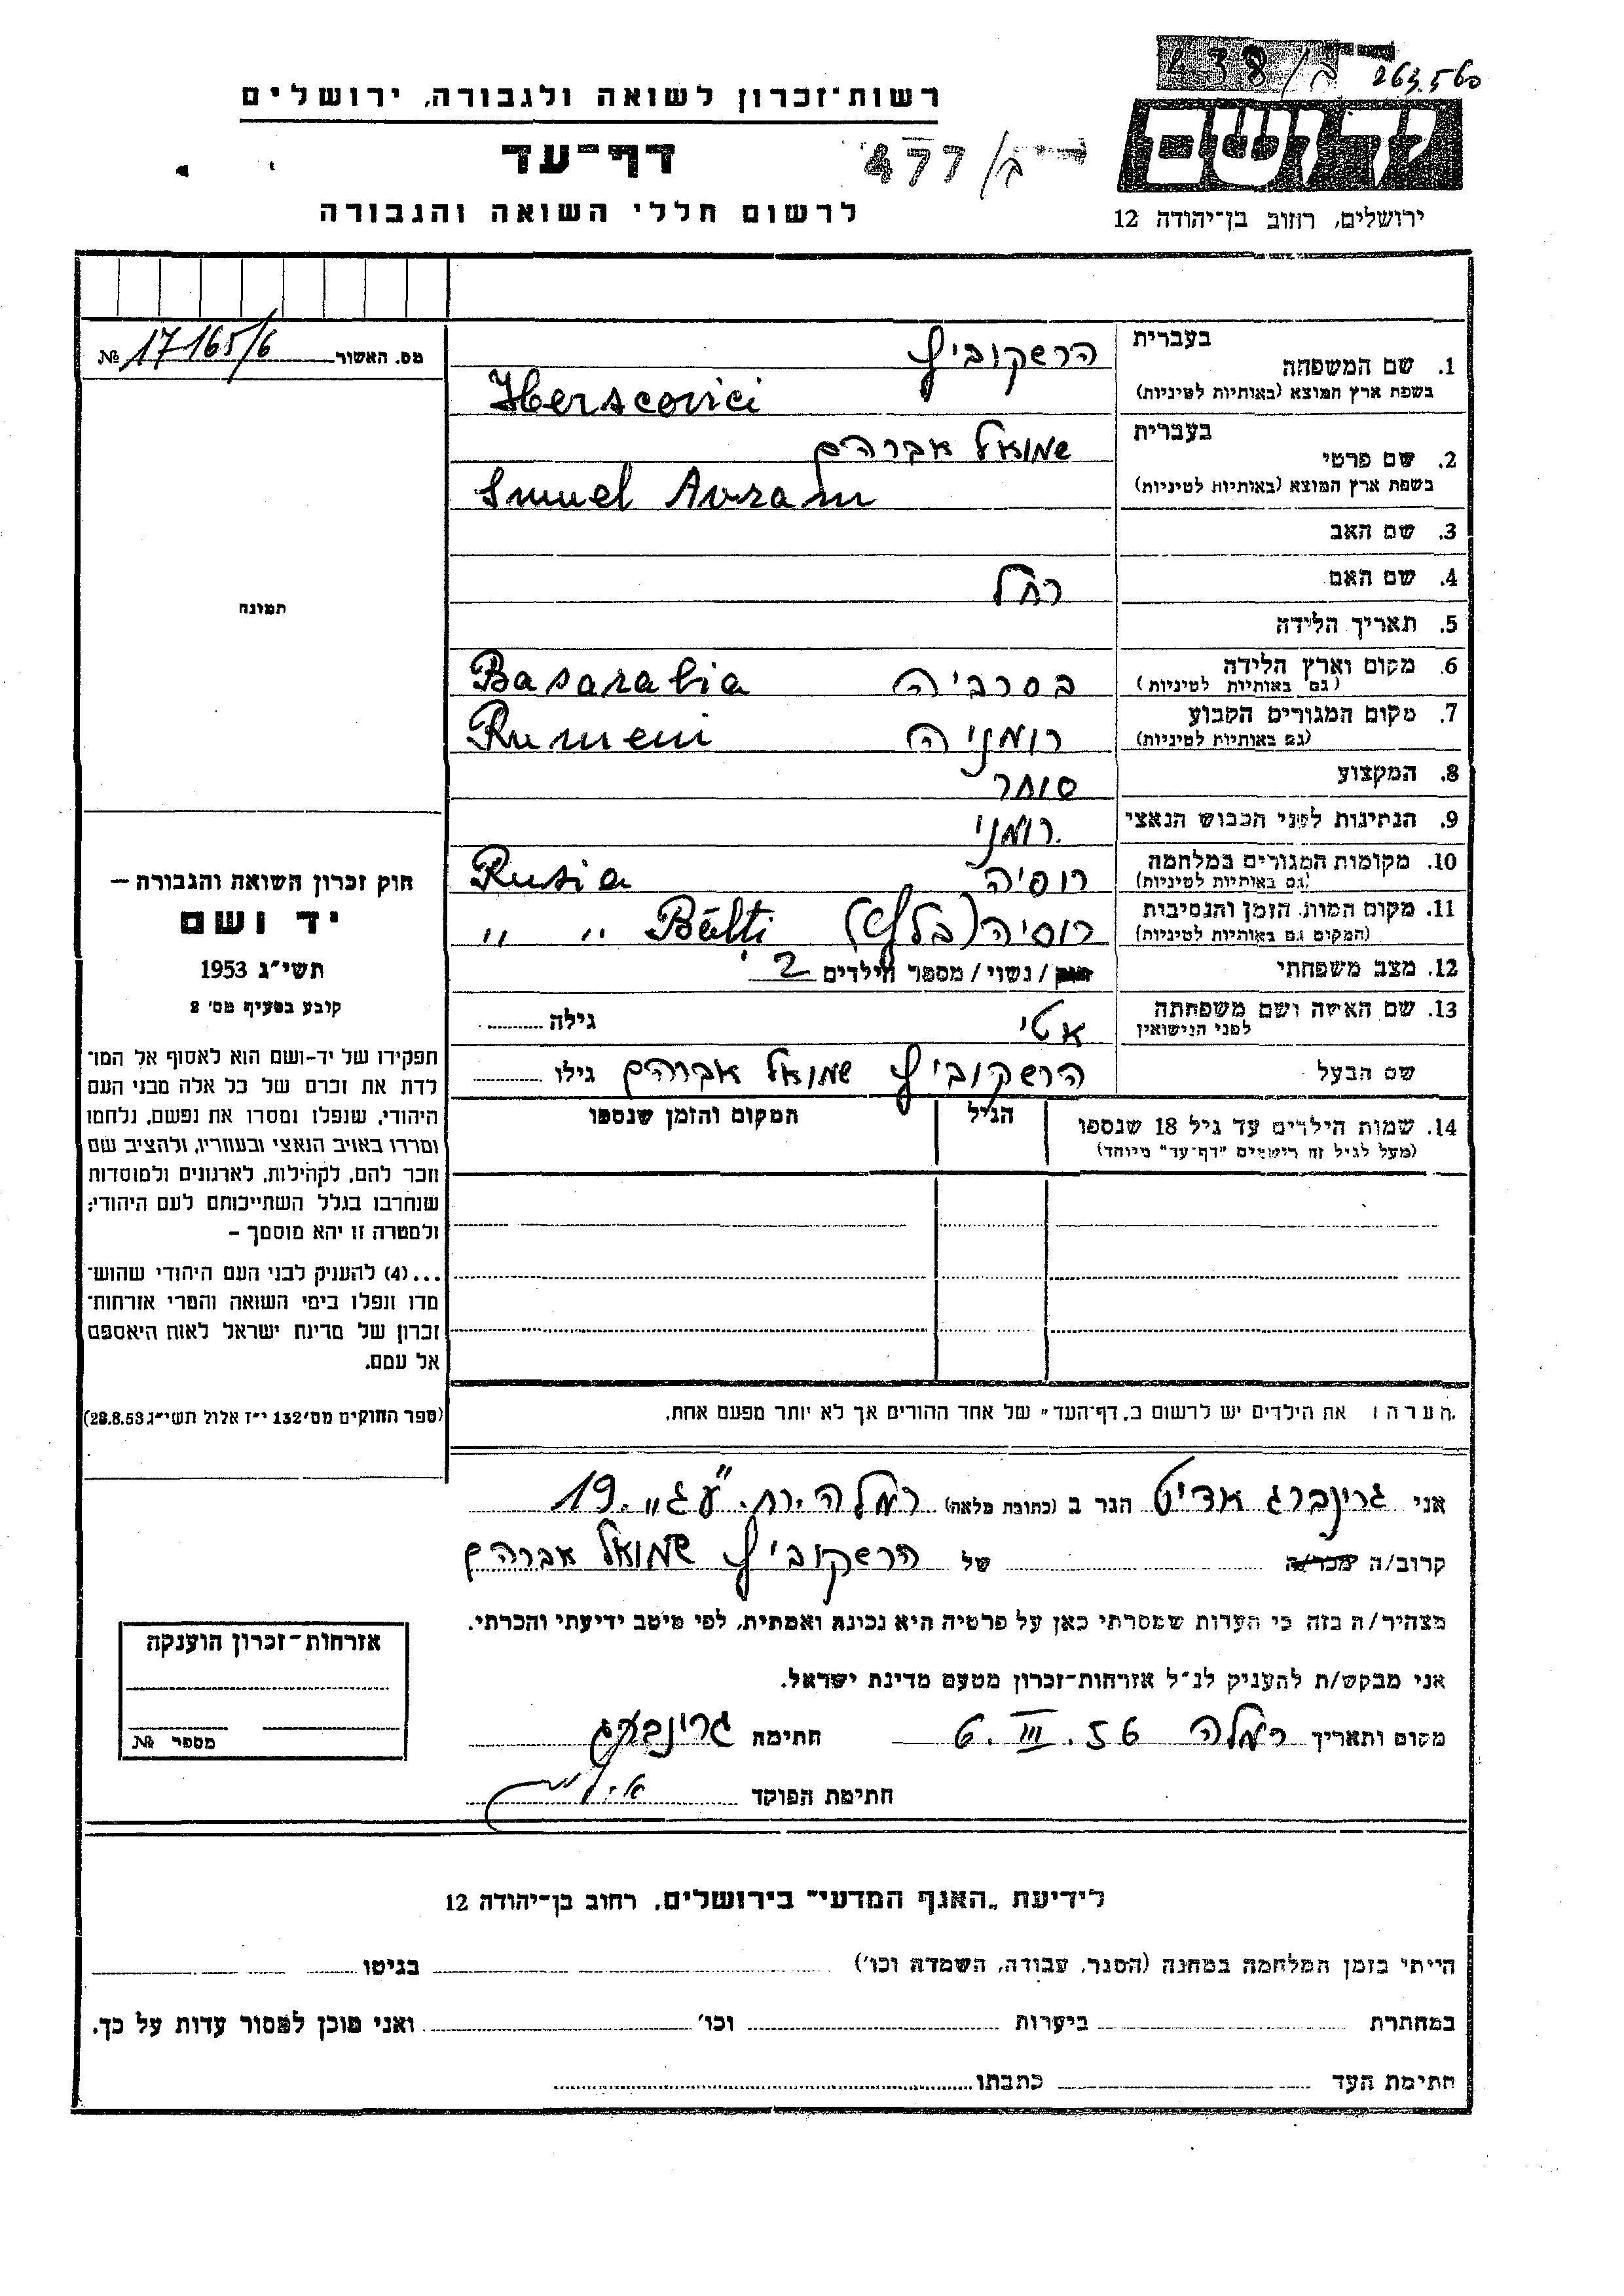 263.560
438/ב
רשות־זכרון לשואה ולגבורה, ירושלים
דף־עד
477/ב
לרשום חללי השואה והגבורה
ירושלים, רחוב בן־יהודה 12
מס. האשור 17165/6 №
תמונה
חוק זכרון השואה והגבורה —
יד ושם
תשי״ג 1953
קובע בסעיף מס׳ 2
תפקידו של יד-ושם הוא לאסוף אל המו־
לדת את זכרם של כל אלה מבני העם
היהודי, שנפלו ומסרו את נפשם, נלחמו
ומרדו באויב הנאצי ובעוזריו, ולהציב שם
וזכר להם, לקהילות, לארגונים ולמוסדות
שנחרבו בגלל השתייכותם לעם היהודי;
ולמטרה זו יהא מוסמך –
...(4) להעניק לבני העם היהודי שהוש־
מדו ונפלו בימי השואה והמרי אזרחות־
זכרון של מדינת ישראל לאות היאספם
אל עמם.
(ספר החוקים מס׳ 132 י״ז אלול תשי״ג 28.8.53)
בעברית הרשקוביץ
1. שם המשפחה
בשפת ארץ המוצא (באותיות לטיניות) Herscovici
בעברית שמואל אברהם
2. שם פרטי
בשפת ארץ המוצא (באותיות לטיניות) Smuel Avram
3. שם האב
4. שם האם רחל
5. תאריך הלידה
6. מקום וארץ הלידה בסרביה Basarabia
(גם באותיות לטיניות)
7. מקום המגורים הקבוע רומניה Rumeni
(גם באותיות לטיניות)
8. המקצוע סוחר
9. הנתינות לפני הכבוש הנאצי רומני.
10. מקומות המגורים במלחמה רוסיה Rusia
(גם באותיות לטיניות)
11. מקום המות, הזמן והנסיבות רוסיה (בלץ) Bălti ,, ,,
(המקום גם באותיות לטיניות)
12. מצב משפחתי רווק / נשוי / מספר הילדים 2
13. שם האשה ושם משפחתה אטי גילה
לפני הנישואין
שם הבעל הרשקוביץ שמואל אברהם גילו
14. שמות הילדים עד גיל 18 שנספו הגיל המקום והזמן שנספו
(מעל לגיל זה רושמים ״דף־עד״ מיוחד)
הערה: את הילדים יש לרשום ב„דף־העד״ של אחד ההורים אך לא יותר מפעם אחת.
אני גרינברג אדיט הגר ב (כתובת מלאה) רמלה .רח. „עג״ 19
קרוב/ה מכר/ה של הרשקוביץ שמואל אברהם
מצהיר/ה בזה כי העדות שמסרתי כאן על פרטיה היא נכונה ואמתית, לפי מיטב ידיעתי והכרתי.
אני מבקש/ת להעניק לנ״ל אזרחות־זכרון מטעם מדינת ישראל.
מקום ותאריך רמלה 6.III.56 חתימה גרינברג
חתימת הפוקד
אזרחות־זכרון הוענקה
מספר №
לידיעת „האגף המדעי״ בירושלים, רחוב בן־יהודה 12
הייתי בזמן המלחמה במחנה (הסגר, עבודה, השמדה וכו׳) בגיטו
במחתרת ביערות וכו׳ ואני מוכן למסור עדות על כך.
חתימת העד כתבתו